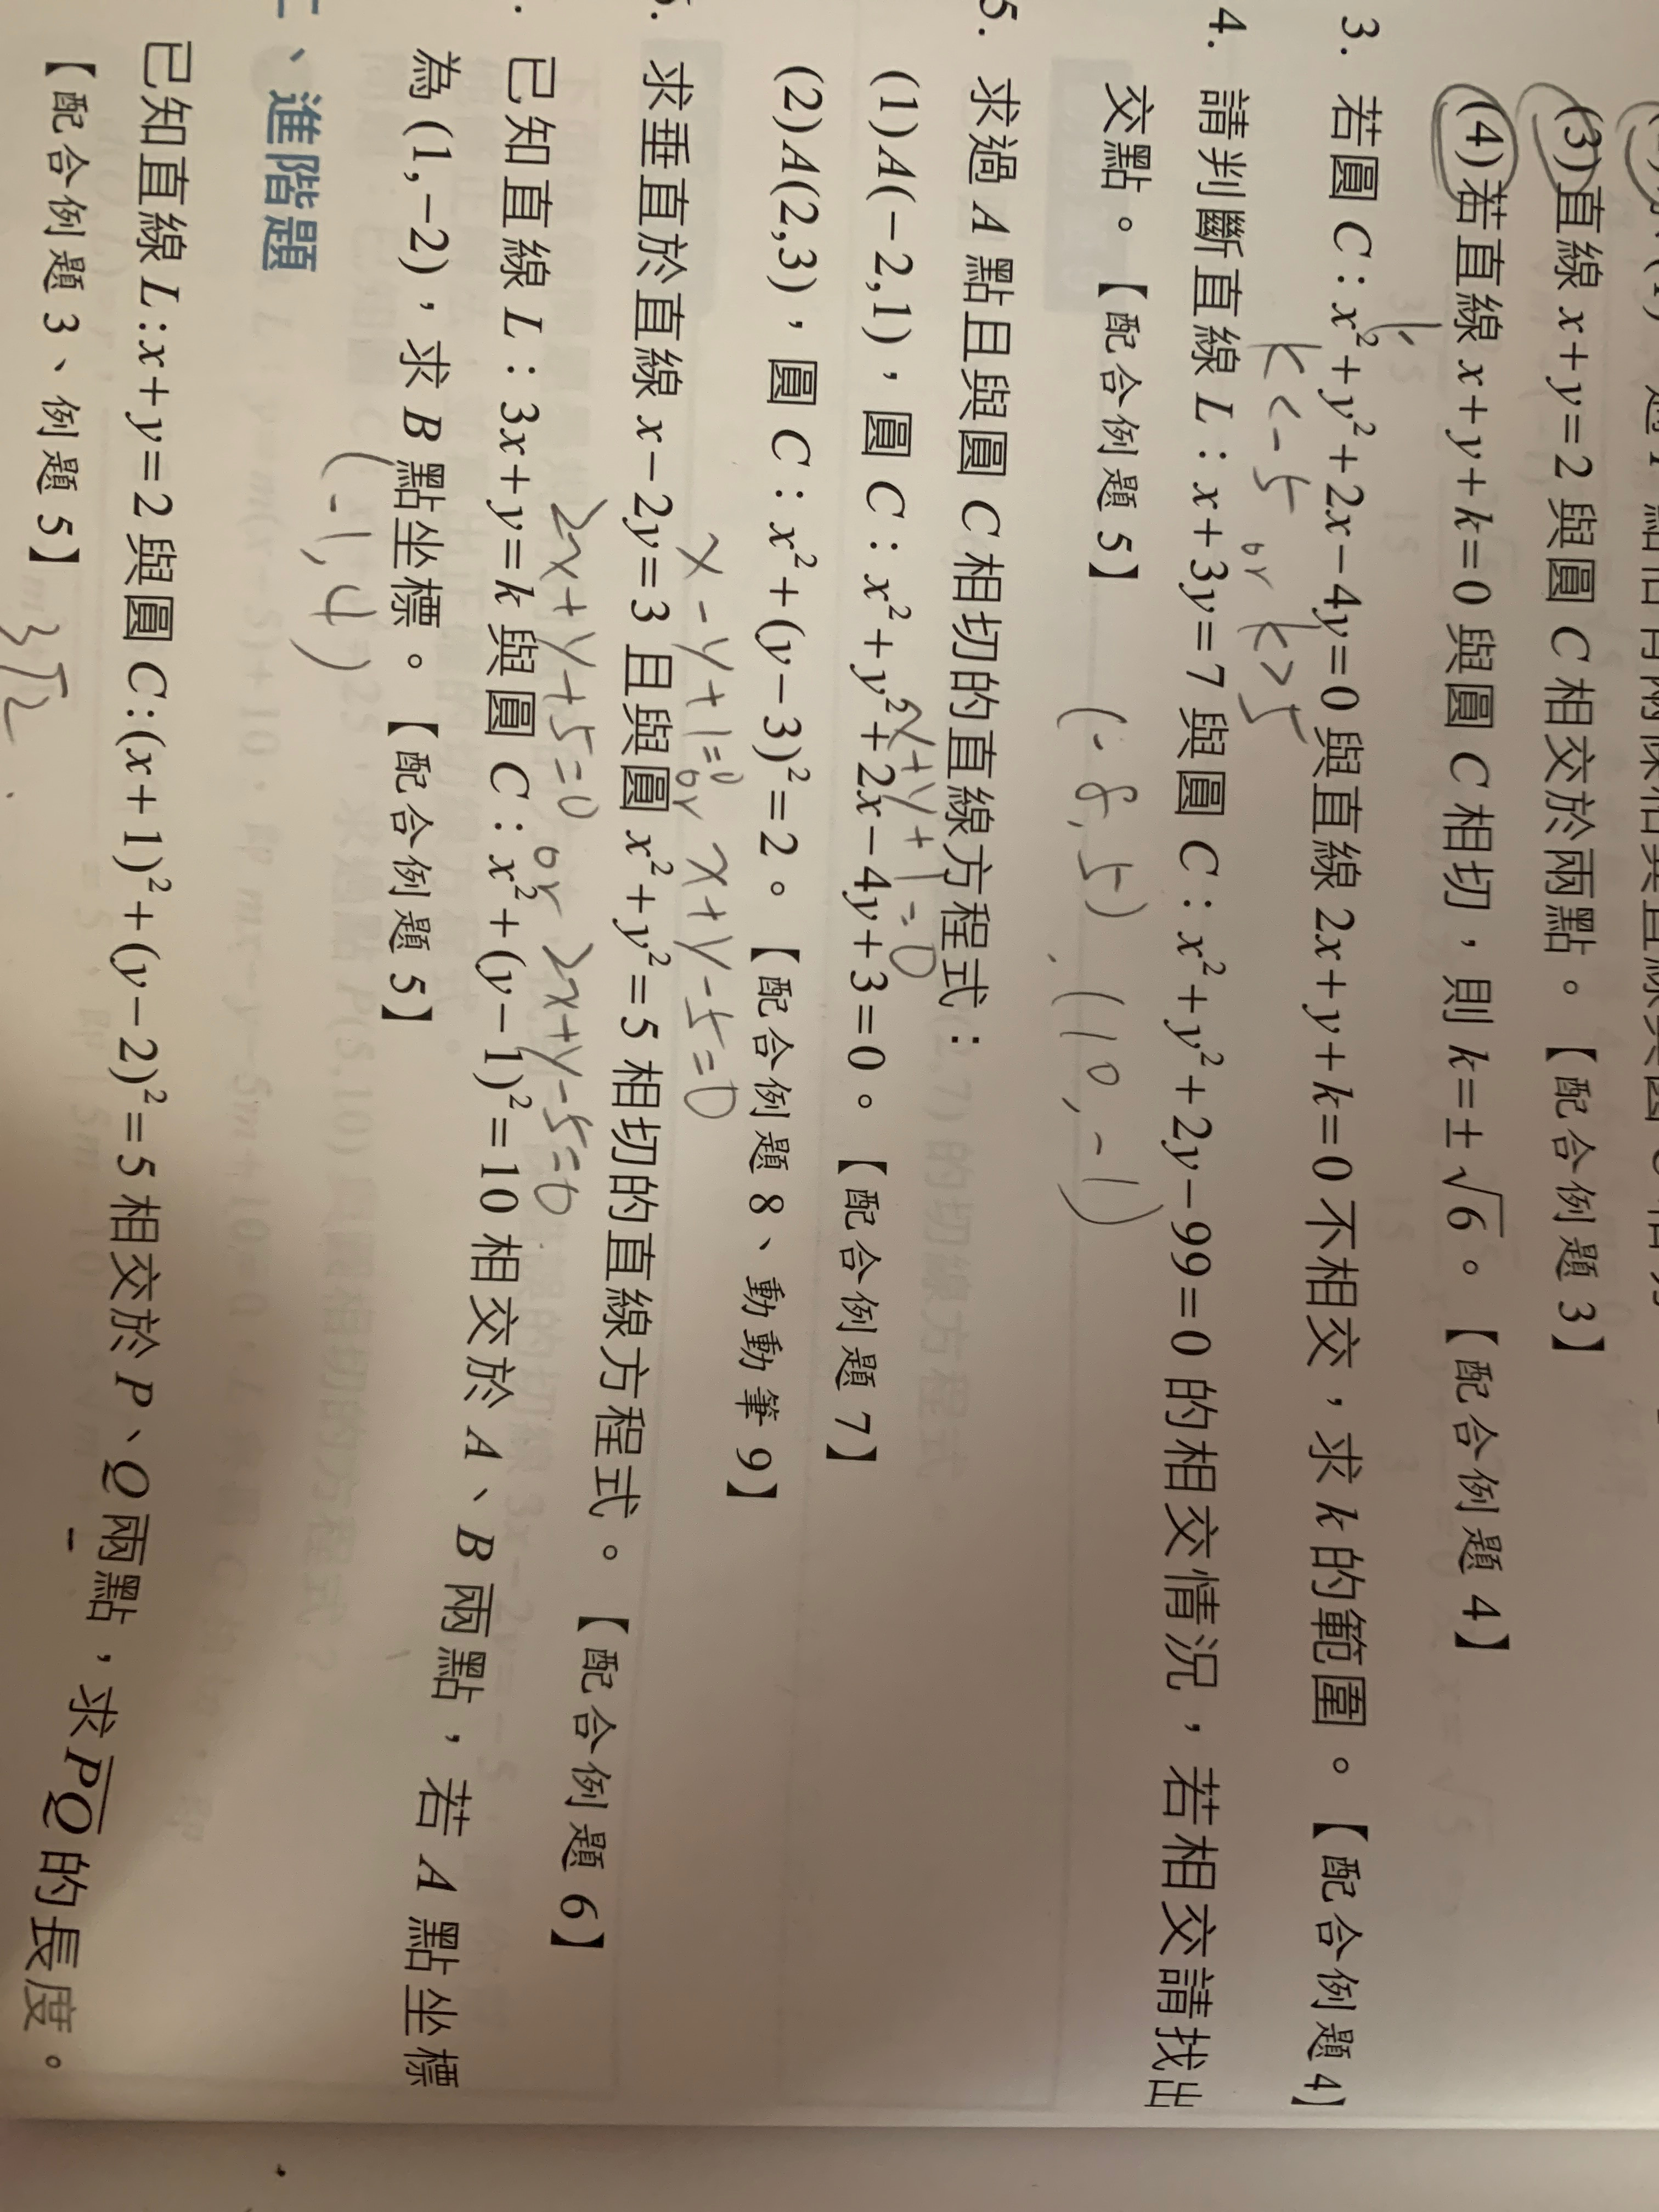 (3)直線 x+y=2 與圓 C 相交於兩點。【配合例題 3】
(4)若直線 x+y+k=0 與圓 C 相切，則 k=±√6。【配合例題 4】
3. 若圓 C：x²+y²+2x-4y=0 與直線 2x+y+k=0 不相交，求 k 的範圍。【配合例題 4】
k<-5 or k>5
4. 請判斷直線 L：x+3y=7 與圓 C：x²+y²+2y-99=0 的相交情況，若相交請找出
交點。【配合例題 5】
(-8,5)、(10,-1)
5. 求過 A 點且與圓 C 相切的直線方程式：
x+y+1=0
(1)A(-2,1)，圓 C：x²+y²+2x-4y+3=0。【配合例題 7】
(2)A(2,3)，圓 C：x²+(y-3)²=2。【配合例題 8、動動筆 9】
x-y+1=0 or x+y-5=0
求垂直於直線 x-2y=3 且與圓 x²+y²=5 相切的直線方程式。【配合例題 6】
2x+y+5=0 or 2x+y-5=0
已知直線 L：3x+y=k 與圓 C：x²+(y-1)²=10 相交於 A、B 兩點，若 A 點坐標
為 (1,-2)，求 B 點坐標。【配合例題 5】
(-1,4)
、進階題
已知直線 L:x+y=2 與圓 C:(x+1)²+(y-2)²=5 相交於 P、Q 兩點，求 PQ 的長度。
【配合例題 3、例題 5】
3√2